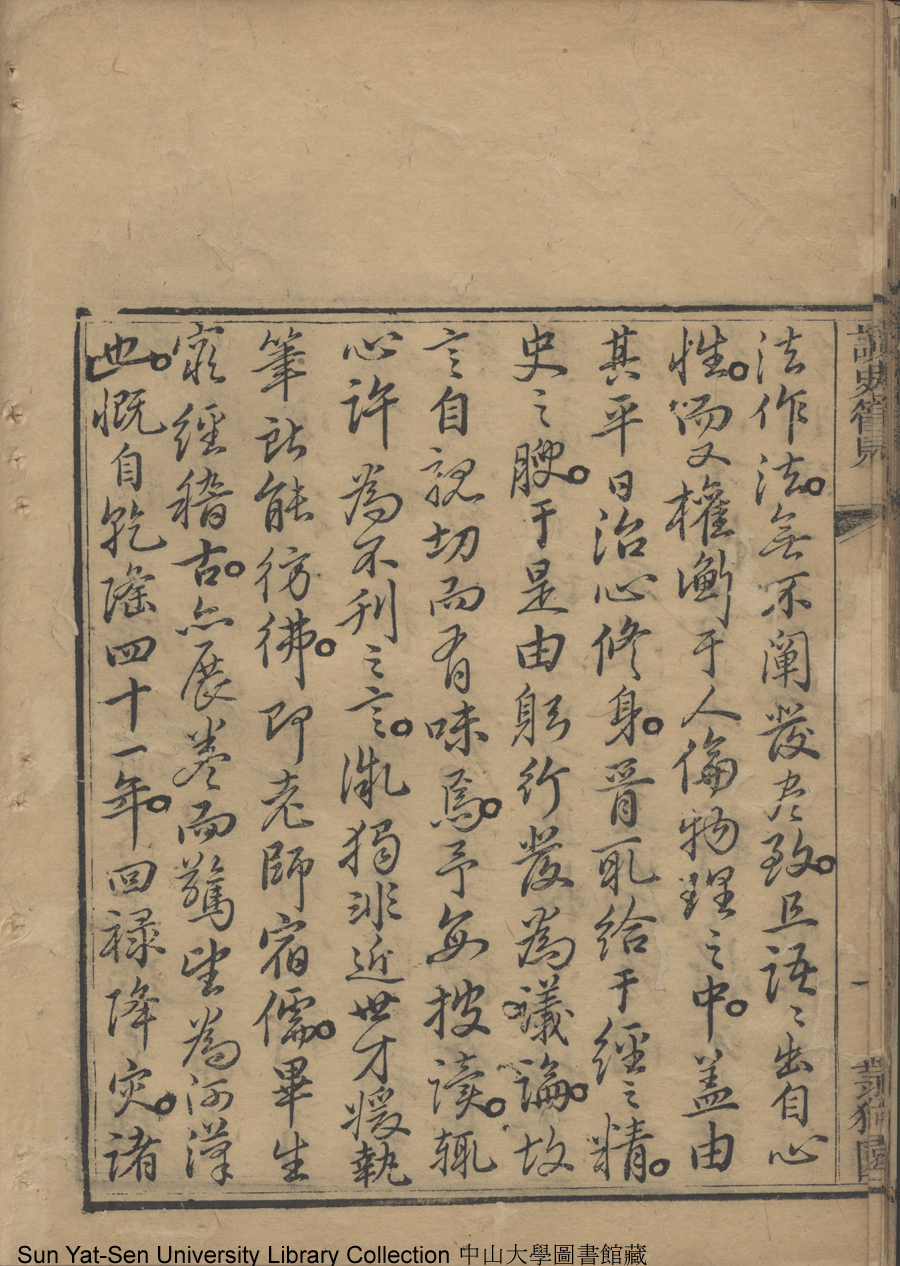 讀史管見
一
法作法。無不闡發尽致。且語〻出自心
性。而又權衡于人倫物理之中。盖由
其平日治心修身。胥取給于經之精。
史之腴。于是由躬行發為議論。故
言自親切而有味焉。予每披读。輒
心許為不刊之言。洵獨非近世才媛執
筆所能彷彿。即老師宿儒。畢生
窮經稽古。亦展卷而驚望為河漢
也。慨自乾隆四十一年。回禄降灾。諸
Sun Yat-Sen University Library Collection 中山大學圖書館藏